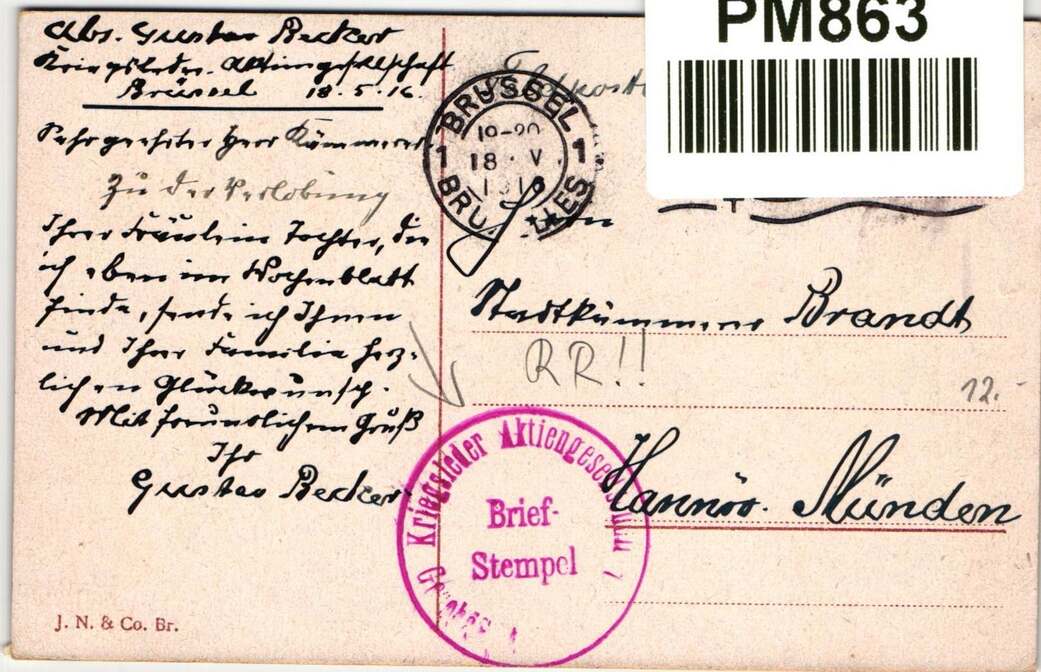 Abs. Gustav Becker
Kriegsleder-Aktiengesellschaft
Brüssel 18.5.16.
Sehr geehrter Herr Kämmerer.
Zu der Verlobung
Ihrer Fräulein Tochter, die
ich eben im Wochenblatt
finde, sende ich Ihnen
und Ihrer Familie herz-
lichen Glückwunsch.
Mit freundlichem Gruß
Ihr
Gustav Becker.
J. N. & Co. Br.
PM863
Feldpost
BRÜSSEL
1 19-20 1
18 . V.
1916
Herrn
Stadtkämmerer Brandt
RR!!
12.-
Hannöv. Münden
Kriegsleder Aktiengesellschaft
Brief-
Stempel